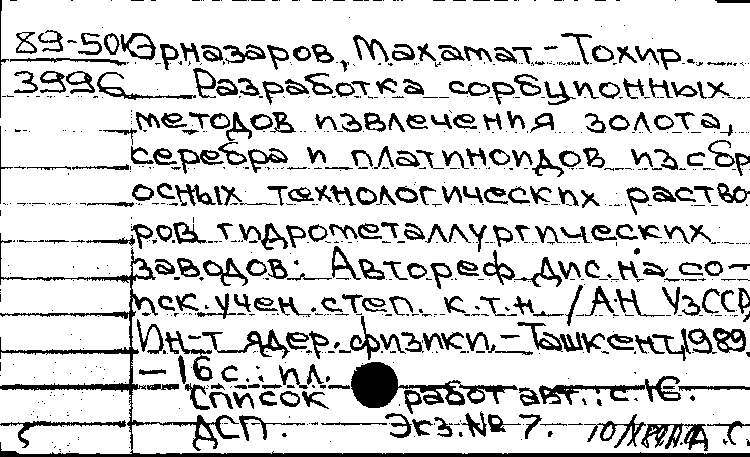 89-50к Эрназаров, Махамат-Тохир.
3996 Разработка сорбционных
методов извлечения золота,
серебра и платиноидов из сбр
осных технологических раство
ров гидрометаллургических
заводов: Автореф. дис. на со-
иск. учен. степ. к.т.н. / АН УзССР,
Ин-т ядер. физики. - Ташкент, 1989.
- 16 с.: ил.
Список работ авт.: с. 16.
5 ДСП. Экз. № 7.